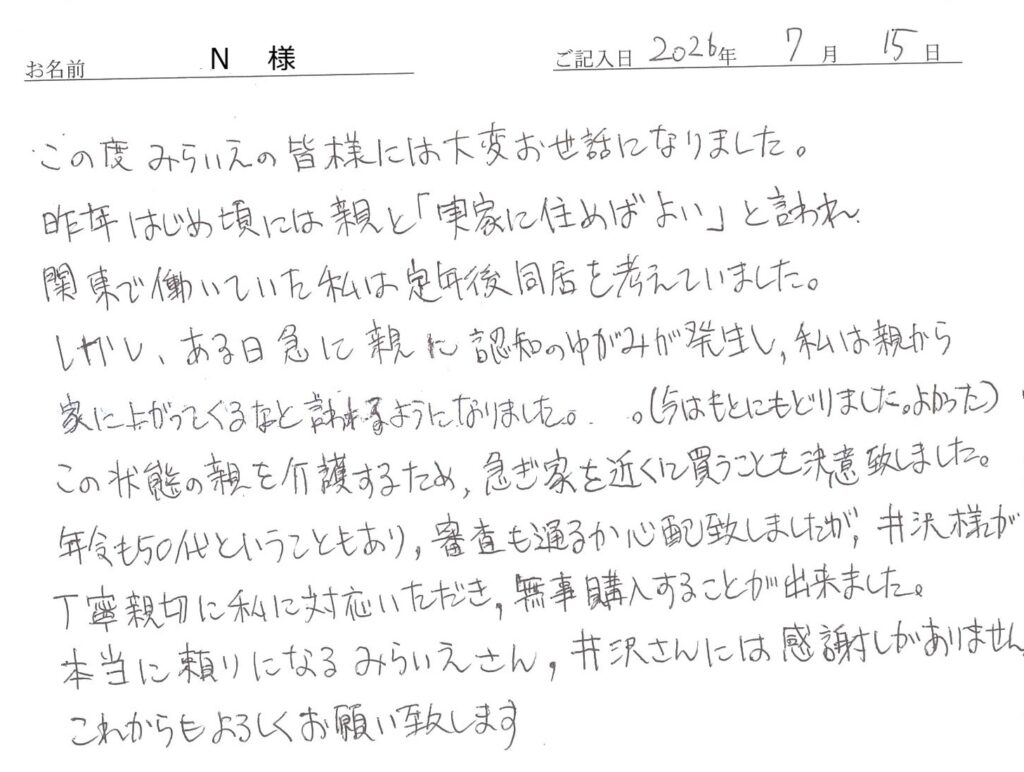 お名前 N 様 ご記入日 2026年 7月 15日
この度 みらいえの皆様には大変お世話になりました。
昨年はじめ頃には親と「実家に住めばよい」と言われ
関東で働いていた私は定年後同居を考えていました。
しかし、ある日急に親に認知のゆがみが発生し,私は親から
家に上がってくるなと言われるようになりました。 。(今はもとにもどりました。よかった)
この状態の親を介護するため,急ぎ家を近くに買うことを決意致しました。
年令も50代ということもあり,審査も通るか心配致しましたが,井沢様が
丁寧親切に私に対応いただき,無事購入することが出来ました。
本当に頼りになるみらいえさん,井沢さんには感謝しかありません
これからもよろしくお願い致します